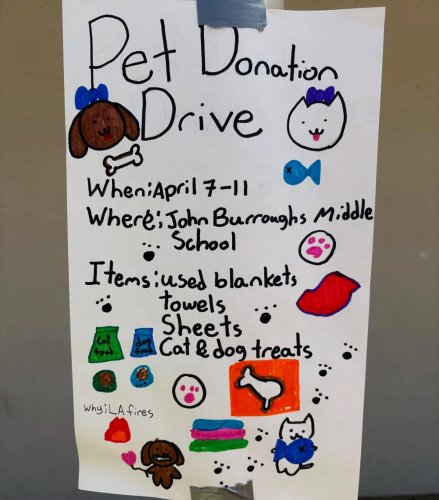 Pet Donation
Drive
When: April 7-11
Where: John Burroughs Middle
School
Items: used blankets
towels
Sheets
Cat & dog treats
cat food
dog food
why: LA fires